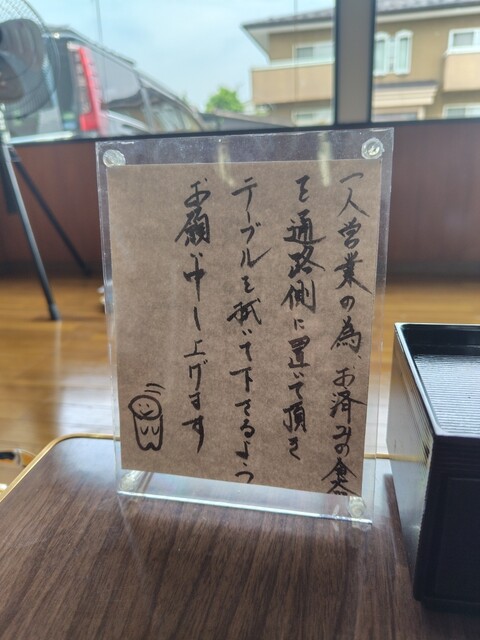 一人営業の為、お済みの食器
を通路側に置いて頂き
テーブルを拭いて下さるよう
お願い申し上げます